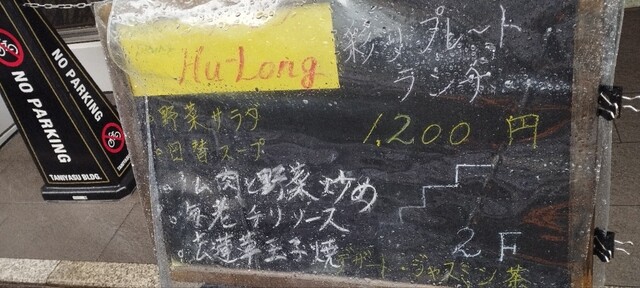 NO PARKING
NO PARKING
TANIYASU BLDG.
Hu-Long
彩りプレート
ランチ
1,200 円
・野菜サラダ
・日替スープ
肉と野菜炒め
チリソース
焼
2F
デザート・ジャスミン茶